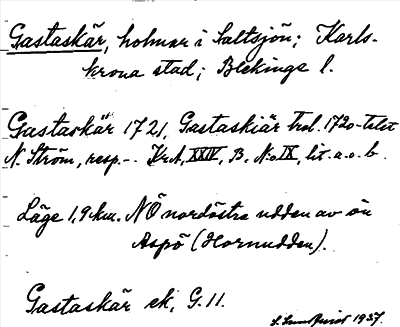 Gastaskär, holmar i Saltsjön; Karls-
krona stad; Blekinge l.
Gastaskär 1721, Gastaskiär trol. 1720-talet
N. Ström, resp. KrA, XXIV, B. No IX, lit. a. o. b.
Läge 1,9 km. NÖ nordöstra udden av ön
Aspö (Hornudden).
Gastaskär ek. G. 11.
S. Lundqvist 1937.